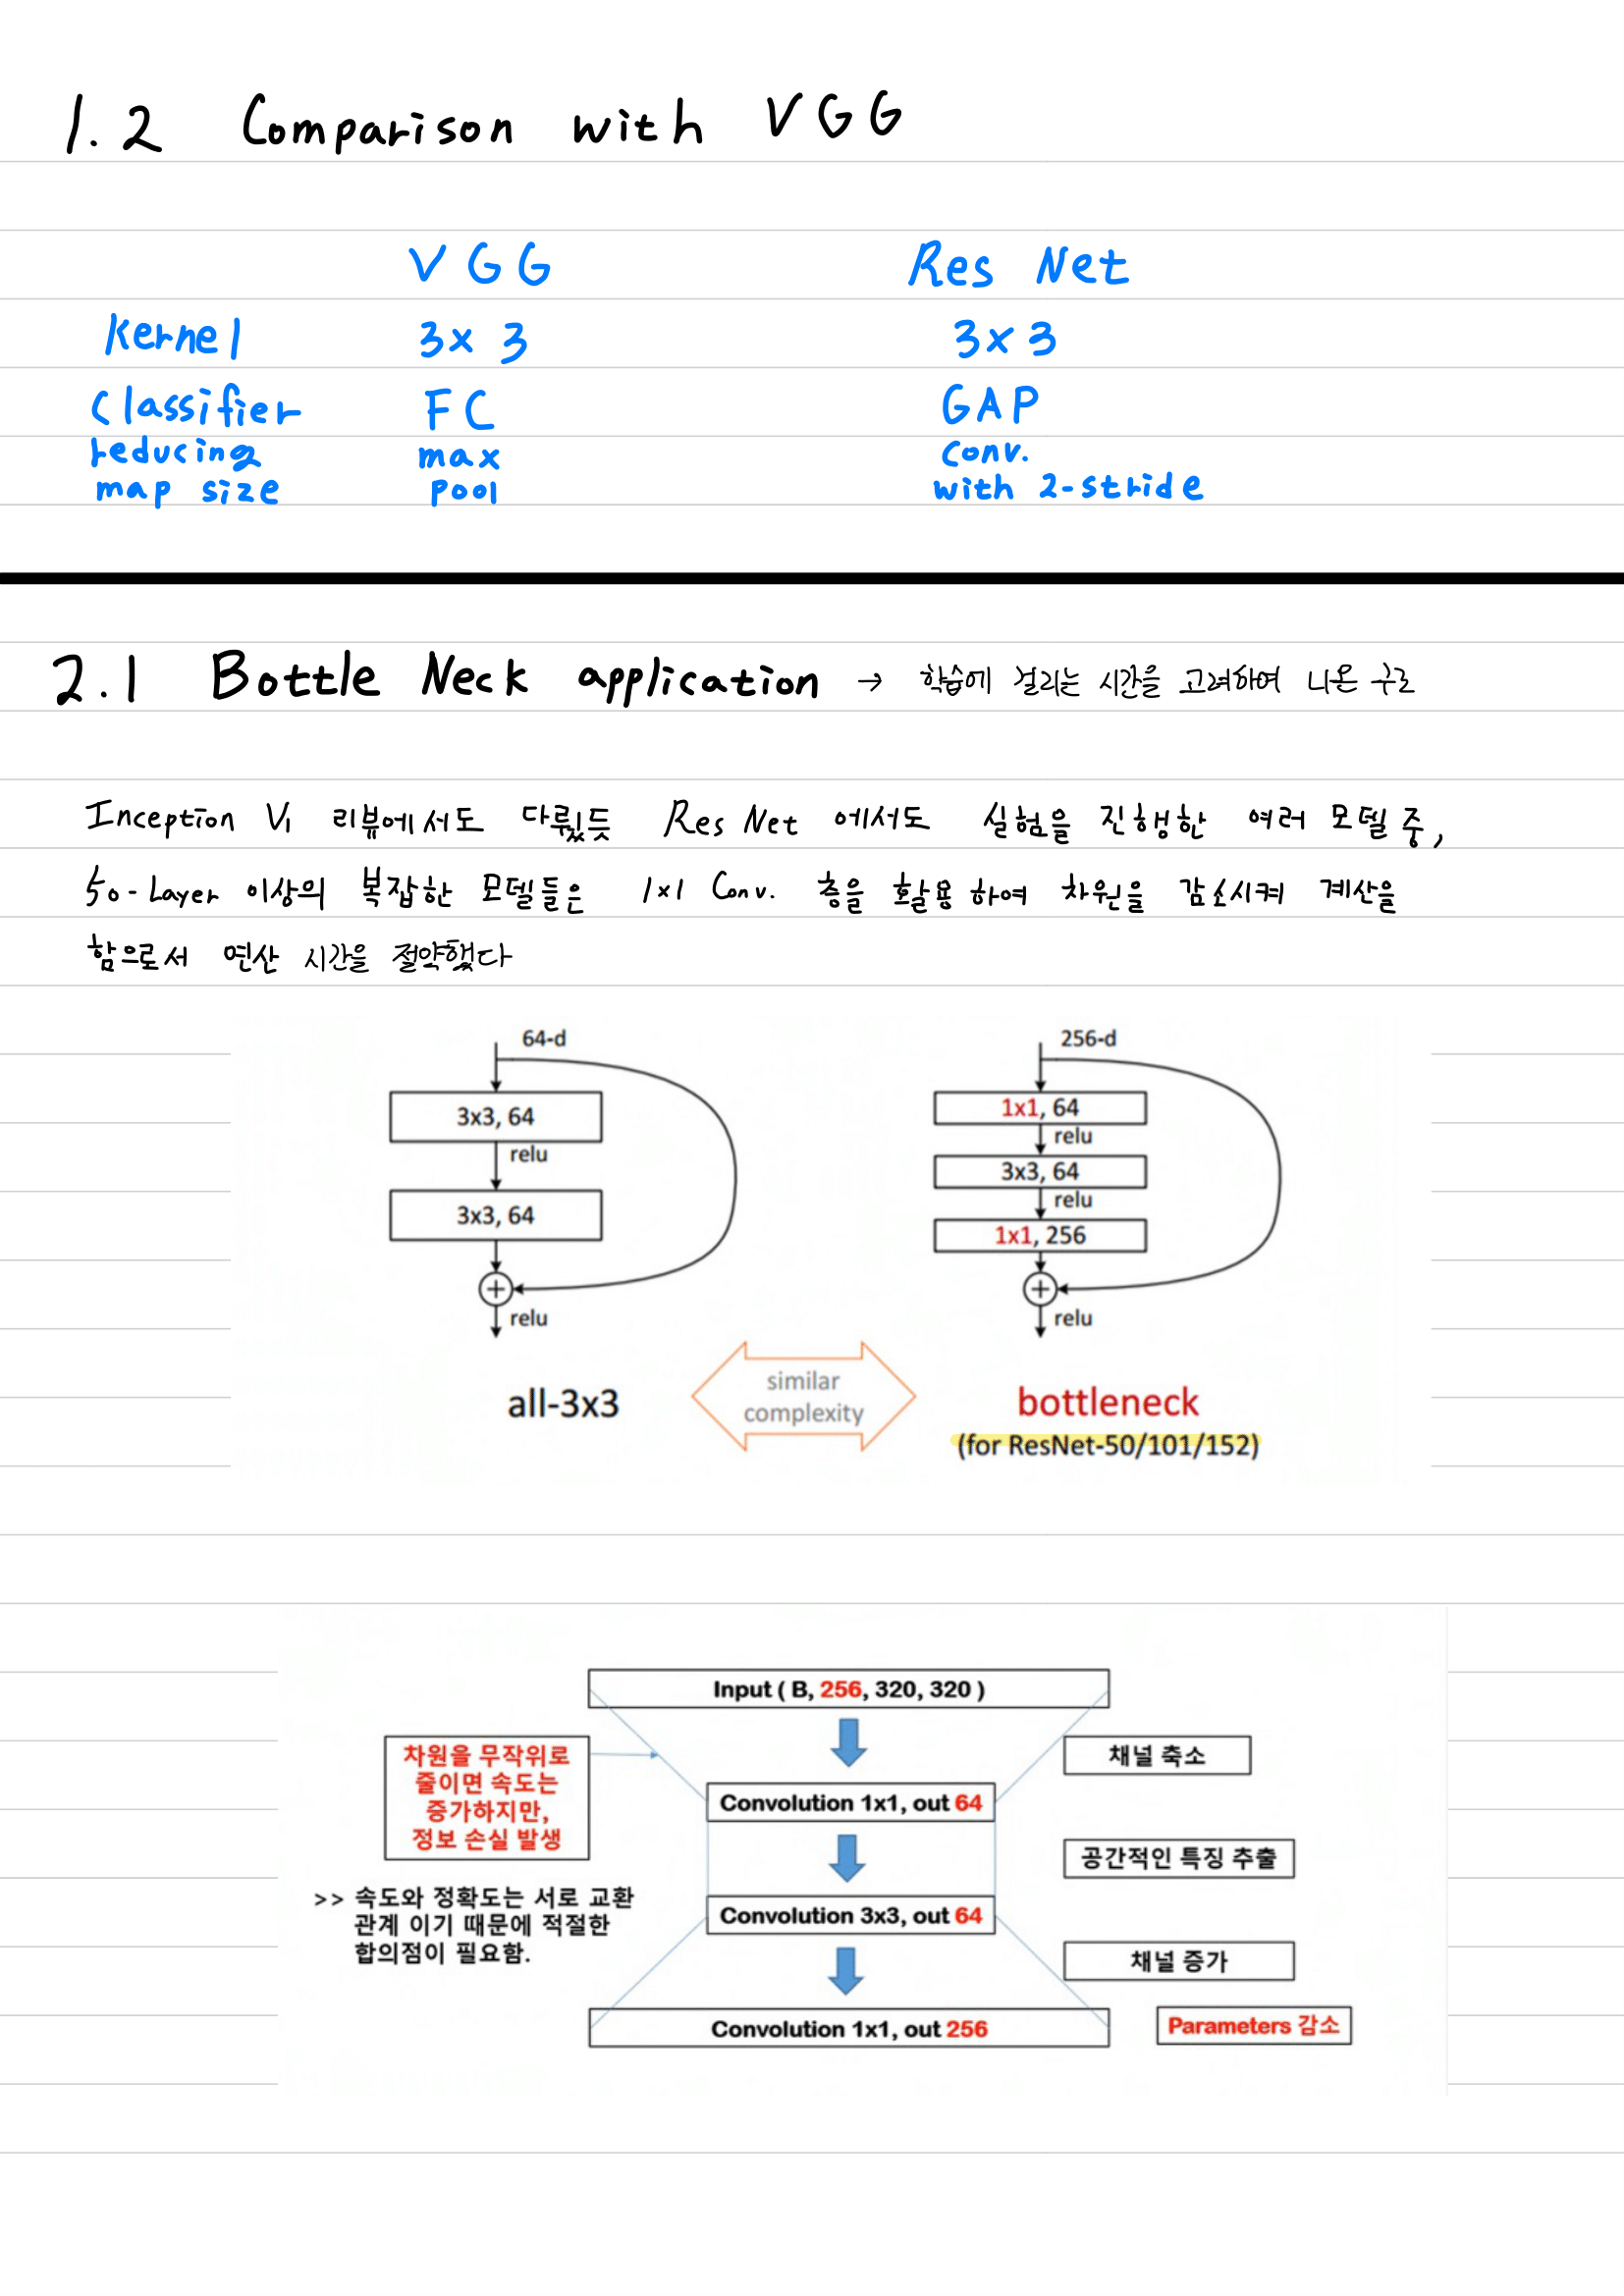 1.2 Comparison with VGG
VGG Res Net
Kernel 3x3 3x3
Classifier FC GAP
reducing max conv.
map size pool with 2-stride
2.1 Bottle Neck application → 학습에 걸리는 시간을 고려하여 나온 구조
Inception V1 리뷰에서도 다뤘듯 Res Net 에서도 실험을 진행한 여러 모델 중,
50-Layer 이상의 복잡한 모델들은 1x1 Conv. 층을 활용하여 차원을 감소시켜 계산을
함으로서 연산 시간을 절약했다
64-d
3x3, 64
relu
3x3, 64
relu
all-3x3
similar
complexity
256-d
1x1, 64
relu
3x3, 64
relu
1x1, 256
relu
bottleneck
(for ResNet-50/101/152)
Input ( B, 256, 320, 320 )
차원을 무작위로
줄이면 속도는
증가하지만,
정보 손실 발생
채널 축소
Convolution 1x1, out 64
공간적인 특징 추출
>> 속도와 정확도는 서로 교환
관계 이기 때문에 적절한
합의점이 필요함.
Convolution 3x3, out 64
채널 증가
Convolution 1x1, out 256
Parameters 감소